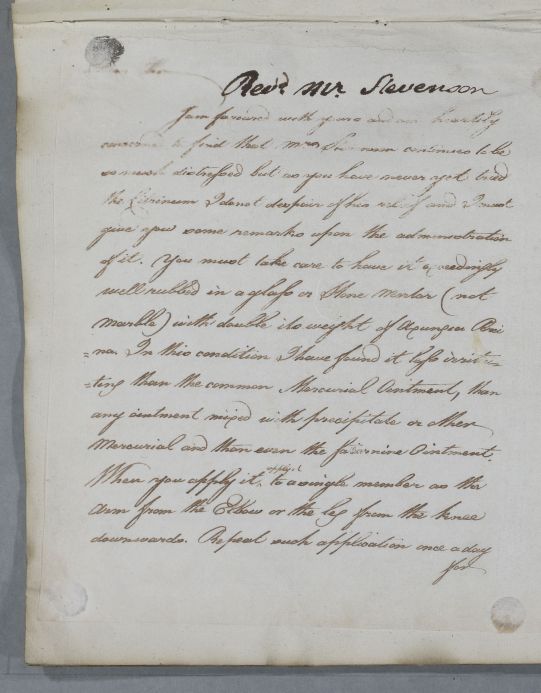 Revd. Mr. Stevenson
I am favoured with yours and am heartily
concerned to find that Mrs. continues to be
so much distressed but as you have never yet tried
the Citrinum I do not despair of his relief and I must
give you some remarks upon the administration
of it. You must take care to have it exceedingly
well rubbed in a glass or Stone Mortar (not
marble) with double its weight of Axungia Porci-
=na. In this condition I have found it less irrita-
=ting than the common Mercurial Ointment, than
any ointment mixed with precipitate or other
Mercurial and than even the Ointment.
When you apply it, apply it to a single member as the
Arm from the Elbow or the leg from the knee
downwards. Repeat such application once a day
for